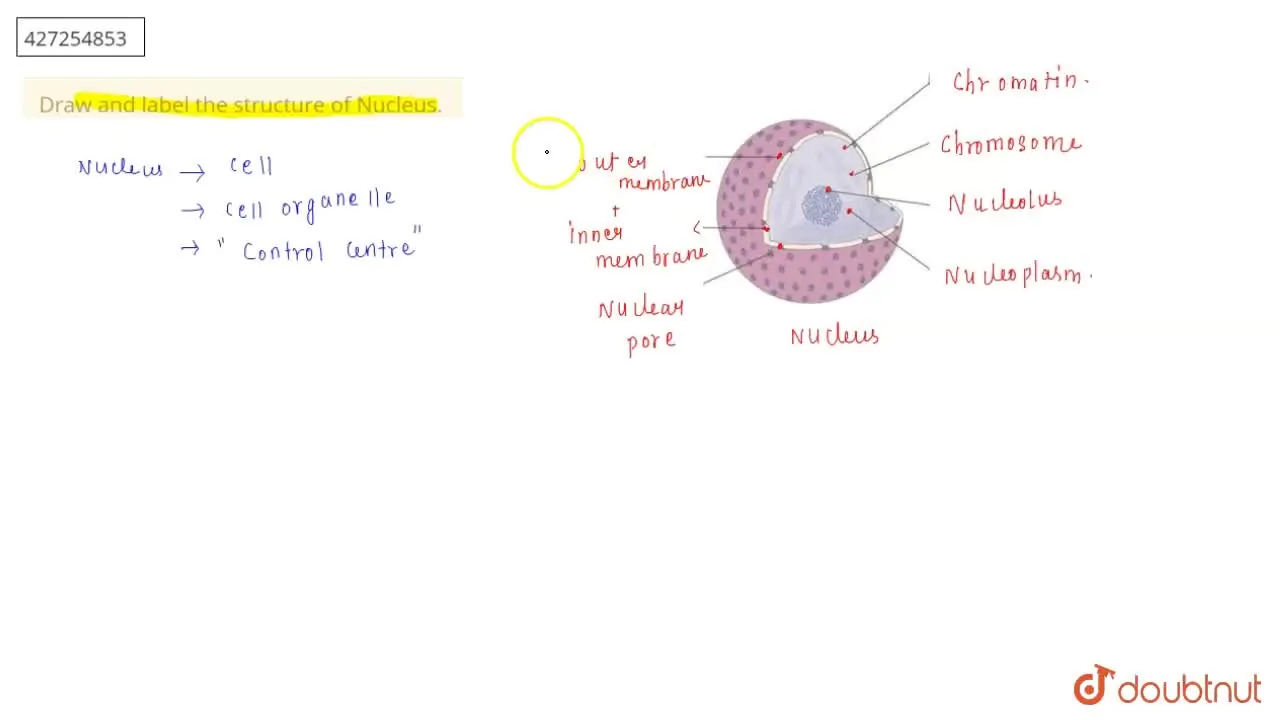 427254853
Draw and label the structure of Nucleus.
Nucleus → cell
→ cell organelle
→ "control centre"
outer
membrane
+
inner
membrane
Nuclear
pore
Chromatin.
Chromosome
Nucleolus
Nucleoplasm.
Nucleus
doubtnut